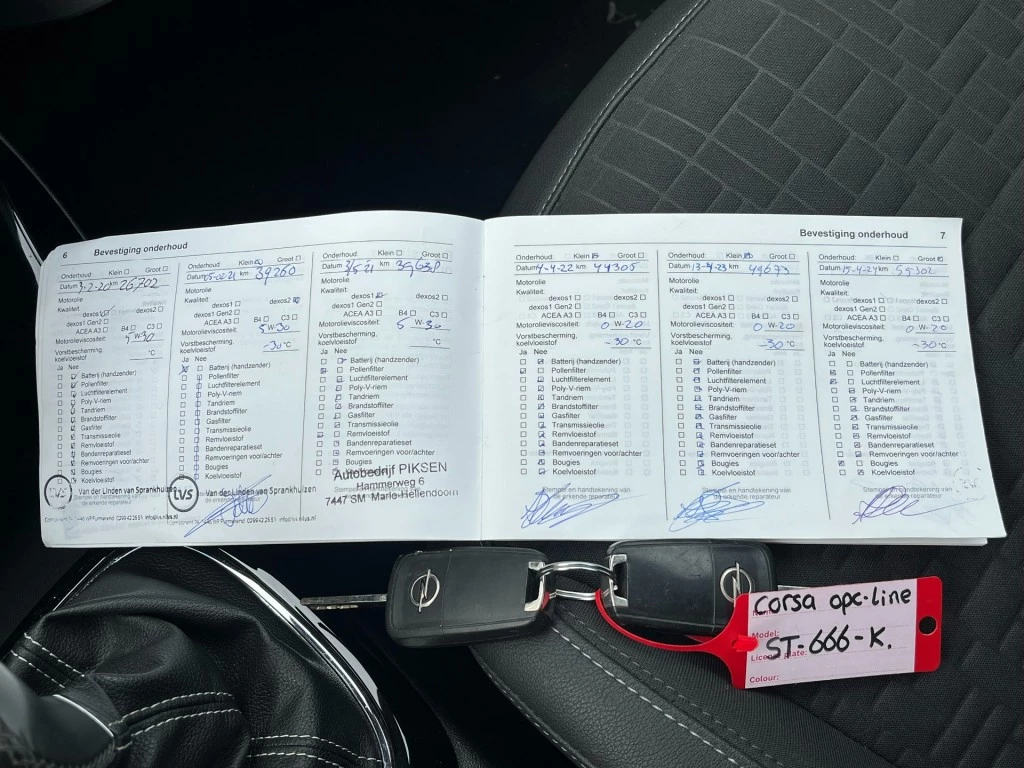 6 Bevestiging onderhoud
Onderhoud: Klein Groot
Datum 3-2-20 km 26,702
Motorolie
Kwaliteit:
dexos1 dexos2
dexos1 Gen2
ACEA A3 B4 C3
Motorolieviscositeit: 5W30
Vorstbescherming,
koelvloeistof °C
Ja Nee
Batterij (handzender)
Pollenfilter
Luchtfilterelement
Poly-V-riem
Tandriem
Brandstoffilter
Gasfilter
Transmissieolie
Remvloeistof
Bandenreparatieset
Remvoeringen voor/achter
Bougies
Koelvloeistof
lvs Van der Linden van Sprankhuizen
Onderhoud: Klein Groot
Datum 05-02-21 km 39260
Motorolie
Kwaliteit:
dexos1 dexos2
dexos1 Gen2
ACEA A3 B4 C3
Motorolieviscositeit: 5W-30
Vorstbescherming,
koelvloeistof -30 °C
Ja Nee
Batterij (handzender)
Pollenfilter
Luchtfilterelement
Poly-V-riem
Tandriem
Brandstoffilter
Gasfilter
Transmissieolie
Remvloeistof
Bandenreparatieset
Remvoeringen voor/achter
Bougies
Koelvloeistof
lvs Van der Linden van Sprankhuizen
Onderhoud: Klein Groot
Datum km
Motorolie
Kwaliteit:
dexos1 dexos2
dexos1 Gen2
ACEA A3 B4 C3
Motorolieviscositeit: 5 W-30
Vorstbescherming,
koelvloeistof °C
Ja Nee
Batterij (handzender)
Pollenfilter
Luchtfilterelement
Poly-V-riem
Tandriem
Brandstoffilter
Gasfilter
Transmissieolie
Remvloeistof
Bandenreparatieset
Remvoeringen voor/achter
Bougies
Koelvloeistof
Autobedrijf PIKSEN
Hammerweg 6
7447 SM Marle-Hellendoorn
Bevestiging onderhoud 7
Onderhoud: Klein Groot
Datum 4-4-22 km 44305
Motorolie
Kwaliteit:
dexos1 dexos2
dexos1 Gen2
ACEA A3 B4 C3
Motorolieviscositeit: 0W-20
Vorstbescherming,
koelvloeistof -30 °C
Ja Nee
Batterij (handzender)
Pollenfilter
Luchtfilterelement
Poly-V-riem
Tandriem
Brandstoffilter
Gasfilter
Transmissieolie
Remvloeistof
Bandenreparatieset
Remvoeringen voor/achter
Bougies
Koelvloeistof
Stempel en handtekening van
de erkende reparateur
Onderhoud: Klein Groot
Datum 13-4-23 km 49673
Motorolie
Kwaliteit:
dexos1 dexos2
dexos1 Gen2
ACEA A3 B4 C3
Motorolieviscositeit: 0W-20
Vorstbescherming,
koelvloeistof -30 °C
Ja Nee
Batterij (handzender)
Pollenfilter
Luchtfilterelement
Poly-V-riem
Tandriem
Brandstoffilter
Gasfilter
Transmissieolie
Remvloeistof
Bandenreparatieset
Remvoeringen voor/achter
Bougies
Koelvloeistof
Stempel en handtekening van
de erkende reparateur
Onderhoud: Klein Groot
Datum 15-4-24 km 55302
Motorolie
Kwaliteit:
dexos1 dexos2
dexos1 Gen2
ACEA A3 B4 C3
Motorolieviscositeit: 0W-20
Vorstbescherming,
koelvloeistof -30 °C
Ja Nee
Batterij (handzender)
Pollenfilter
Luchtfilterelement
Poly-V-riem
Tandriem
Brandstoffilter
Gasfilter
Transmissieolie
Remvloeistof
Bandenreparatieset
Remvoeringen voor/achter
Bougies
Koelvloeistof
Stempel en handtekening van
de erkende reparateur
Corsa opc-line
Model:
ST-666-K.
License plate:
Colour: